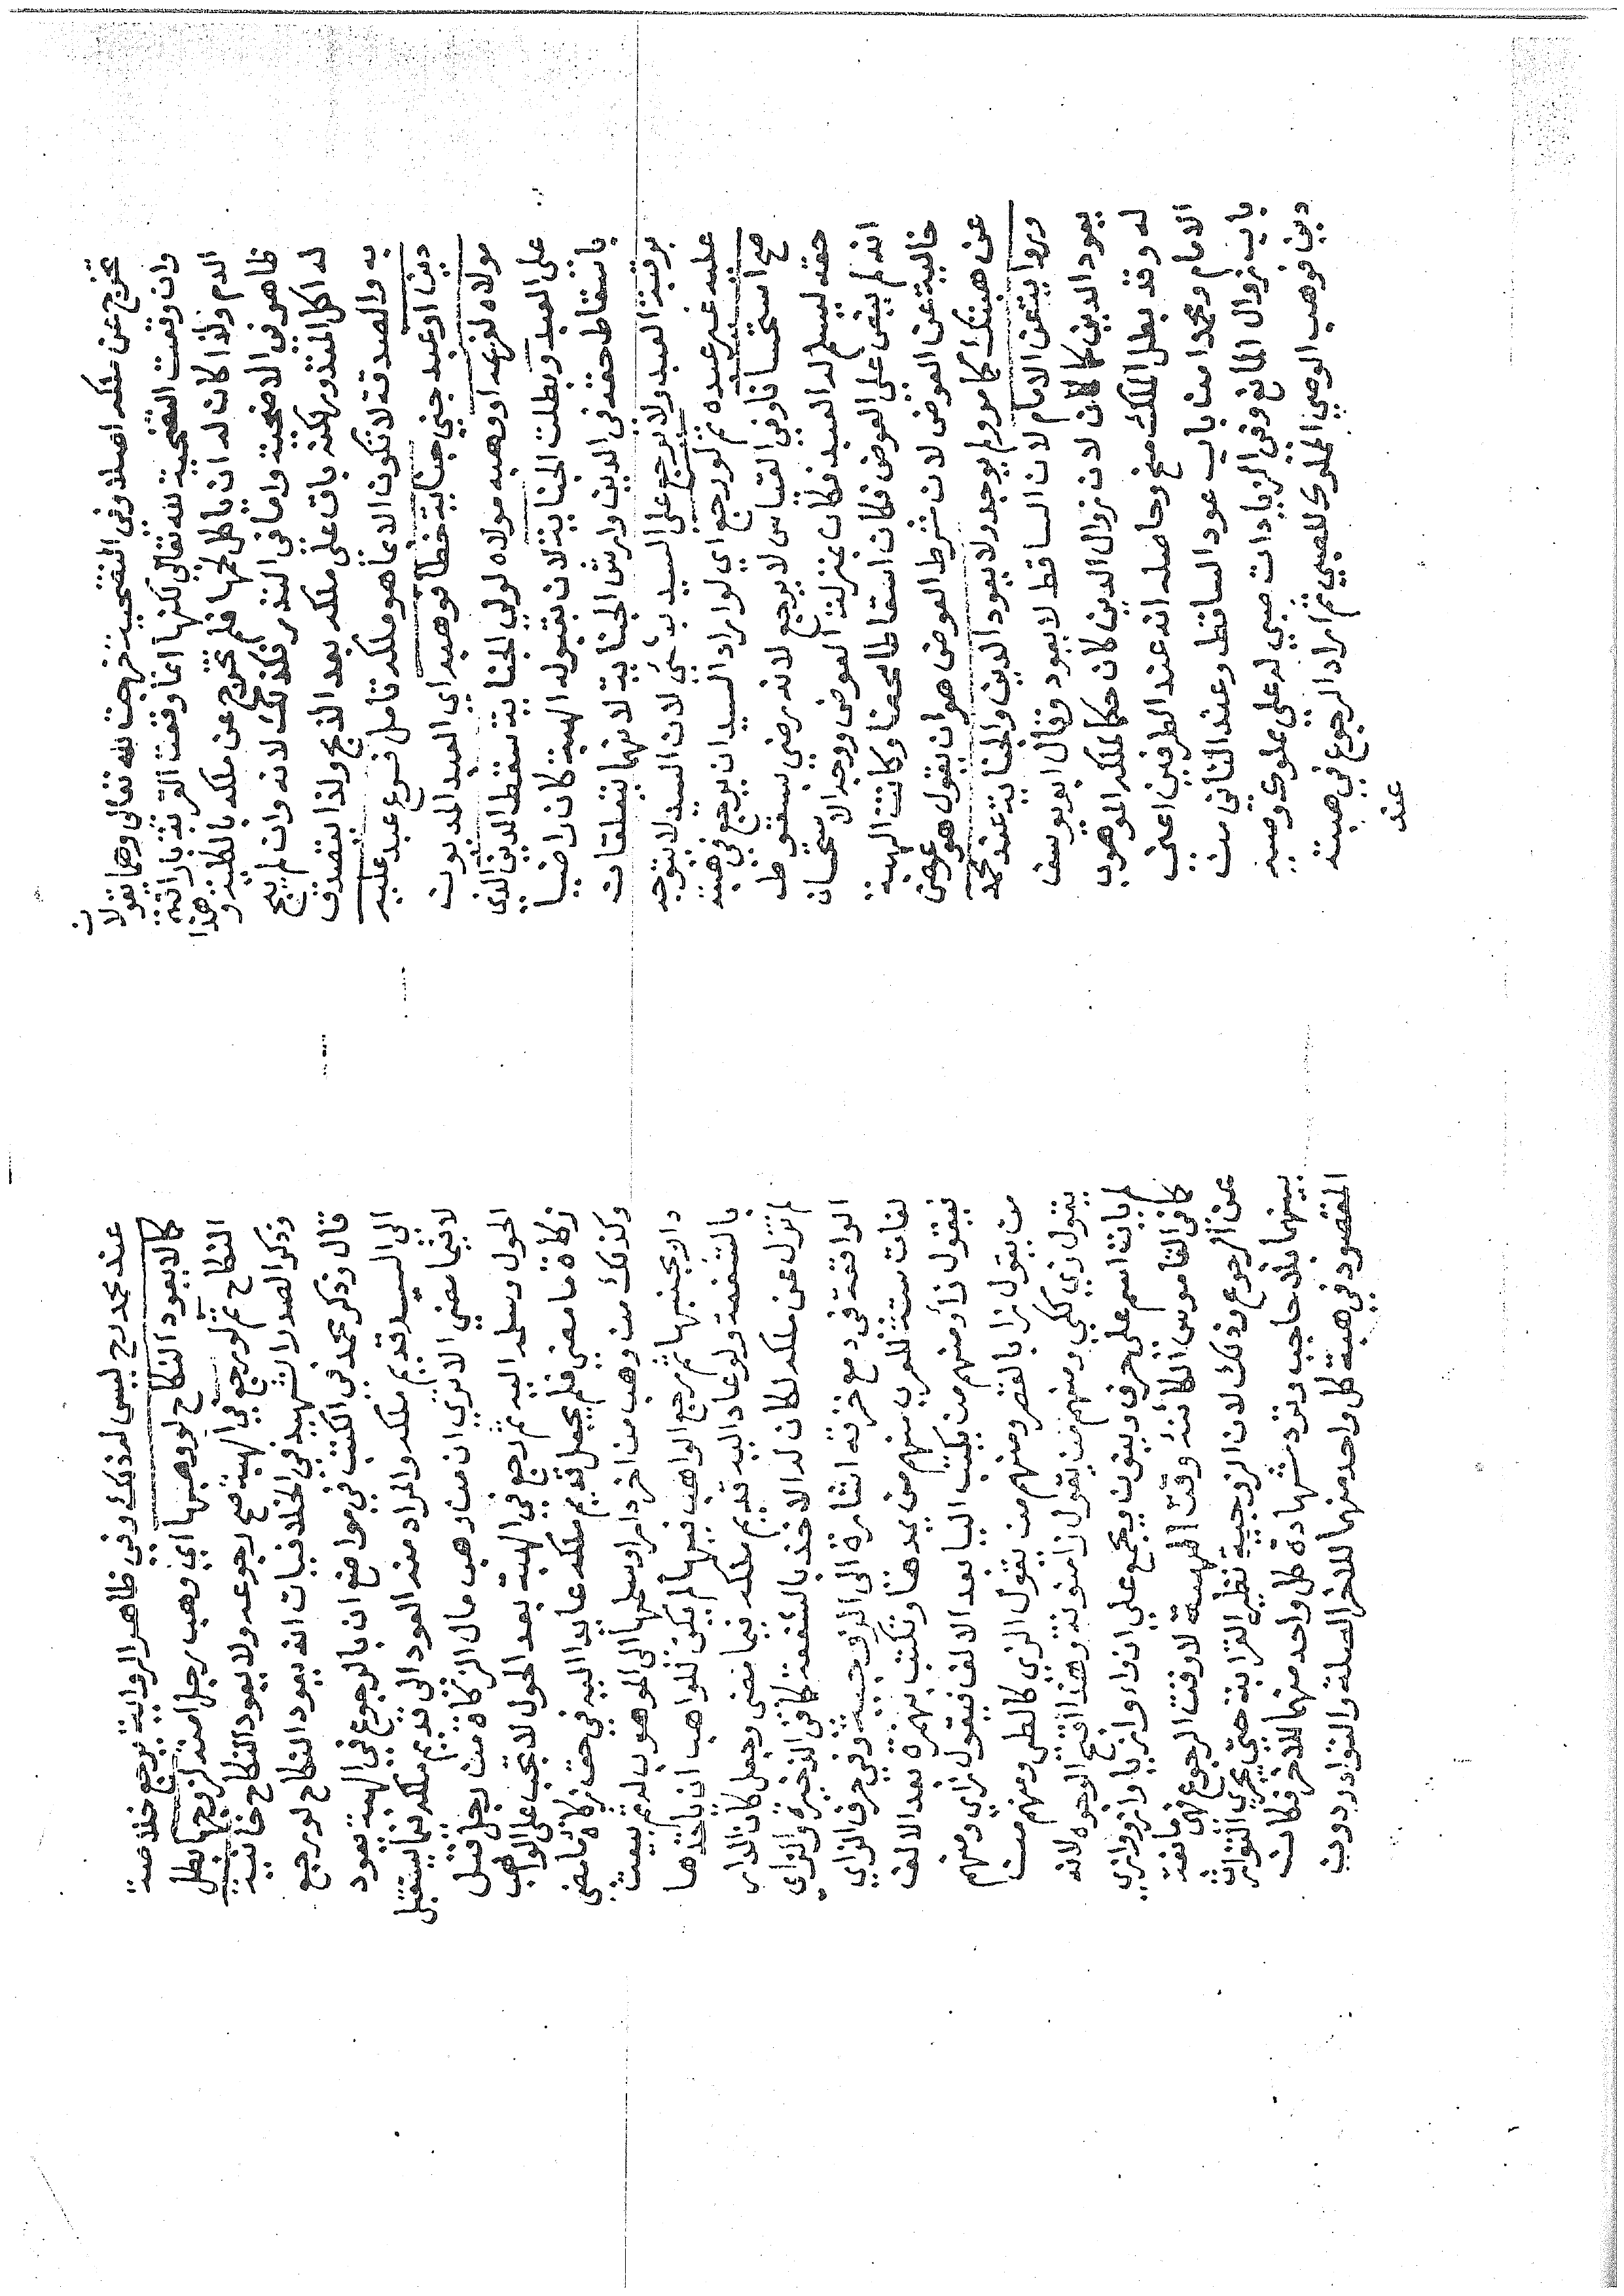 تخرج عن ملكه اصلا وفي التضحية خرجت لله تعالى وهما يقولان
وان وقعت التضحية لله تعالى لكنها انما وقعت القربة باراقة
الدم ولذا كان له ان ياكل لحمها فلم تخرج عن ملكه بالكلية وهذا
ظاهر في الاضحية واما في النذر فكذلك لانه وان لم يبح
له اكل المنذور لكنه باق على ملكه بعد الذبح ولذا يتصدق
به والصدقة لا تكون الا بما هو ملكه تامل فروع عبد عليه
دين او عبد جني جناية خطا فوهبه اي العبد المديون
مولاه لغريمه او وهبه مولاه لولي الجناية سقط الدين الذي
على العبد وبطلت الجناية لان بقبوله الهبة كان راضيا
باسقاط حقه في الدين وارش الجناية لانهما يتعلقان
برقبة العبد ولا يرجع على السيد بشئ لان السيد لا يتوجه
عليه غير عبده ثم لو رجع اي لو اراد السيد ان يرجع في هبته
صح استحسانا وفي القياس لا يرجع لانه رضي بسقوط
حقه ليسلم له العبد فكان بمنزلة العوض ووجه الاستحسان
انه لم ينص على العوض فكان اسقاطا محضا وكانت الهبة
خالية عن العوض لان شرط العوض هو ان يقول هو عوض
عن هبتك كما مر ولم يوجد ولا يعود الدين والجناية عند محمد
ورواية عن الامام لان الساقط لا يعود وقال ابو يوسف
يعود الدين كما كان لان زوال الدين كان حكما لملكه الموهوب
له وقد بطل الملك منح وحاصله انه عند الطرفين اعني
الامام ومحمدا من باب عود الساقط وعند الثاني من
باب زوال المانع وفي الزيادات صبي له على مملوك وصيه
دين فوهب الوصي المملوك للصبي ثم اراد الرجوع في هبته
عند
عند محمد رح ليس له ذلك وفي ظاهر الرواية يرجع خلاصة
كما لا يعود النكاح لو وهبها اي وهب رجل امته لزوجها بطل
النكاح ثم لو رجع في الهبة صح رجوعه ولا يعود النكاح خانية
وذكر الصدر الشهيد في الخلافيات انه يعود النكاح لو رجع
قال وذكر محمد في الكتب في مواضع ان بالرجوع في الهبة يعود
الى السيد قديم ملكه والمراد منه العود الى قديم ملكه فيما يستقبل
لا فيما مضي الا تري ان من وهب مال الزكاة من رجل قبل
الحول وسلمه اليه ثم رجع في الهبة بعد الحول لا تجب على الواهب
زكاة ما مضى فلم يجعل قديم ملكه عايدا اليه في حق زكاة ما مضى
وكذلك من وهب من اخر دارا وسلمها الى الموهوب له ثم بيعت
دار بجنبها ثم رجع الواهب فيها لم يكن للواهب ان ياخذها
بالشفعة ولو عاد اليه قديم ملكه فيما مضى وجعل كان الدار
لم تزل عن ملكه لكان له الاخذ بالشفعة كما في الذخيرة والزاي
الواقعة في دمع خزقه اشارة الى الزوجية وفي حرف الزاي
لغات ستة للعرب منهم من يمدها وتكتب بهمزة بعد الالف
فيقول زاء ومنهم من يكتب اليا بعد الالف فيقول زاي ومنهم
من يقول زا بالقصر ومنهم من يقول الزي كالطي ومنهم من
يقول زي ككي ومنهم من يقول زا منونة وهذا اقبح الوجوه لانه
لم يات اسم على حرف وينون ويجمع على ازواء وازياء وازو وازي
كما في القاموس الكائنة وقت الهبة لا وقت الرجوع فهي مانعة
عن الرجوع وذلك لان الزوجية نظير القرابة حتى يجري التوارث
بينهما بلا حاجب وترد شهادة كل واحد منهما للاخر فكان
المقصود في هبة كل واحد منهما للاخر الصلة والتواد دون